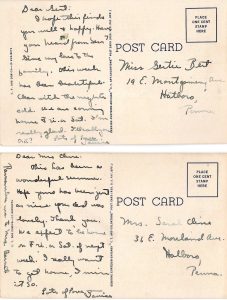 Dear Gert:
I hope this finds
you well & happy. Have
you heard from
Give my love to the
family. This week
has been beautiful
clear with the nights
cold. We are coming
home Fri. or Sat. I'm
really glad.
Love
POST CARD
PLACE
ONE CENT
STAMP
HERE
Miss Gertie Bert
19 E. Montgomery Ave.
Hatboro
Penna.
Dear Mrs. Cline:
This has been a
wonderful summer.
Hope yours has been just
as nice. Your card was
lovely. Thank you.
We expect to be home
on Fri. or Sat. of next
week. I really want
to get home. I miss
it so.
Lots of love,
POST CARD
PLACE
ONE CENT
STAMP
HERE
Mrs. Sarah Cline
31 E. Moreland Ave.
Hatboro
Penna.